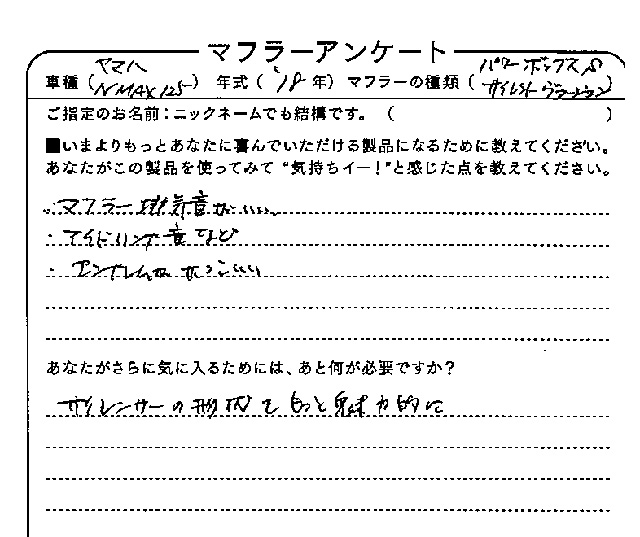 マフラーアンケート
車種（ヤマハ NMAX125）年式（'18年）マフラーの種類（パワーボックス サイレント）
ご指定のお名前：ニックネームでも結構です。（　　　）
■いまよりもっとあなたに喜んでいただける製品になるために教えてください。
あなたがこの製品を使ってみて“気持ちイー！”と感じた点を教えてください。
・マフラー排気音がいい
・アイドリング音など
・エンブレムがかっこいい
あなたがさらに気に入るためには、あと何が必要ですか？
サイレンサーの形状をもっと魅力的に